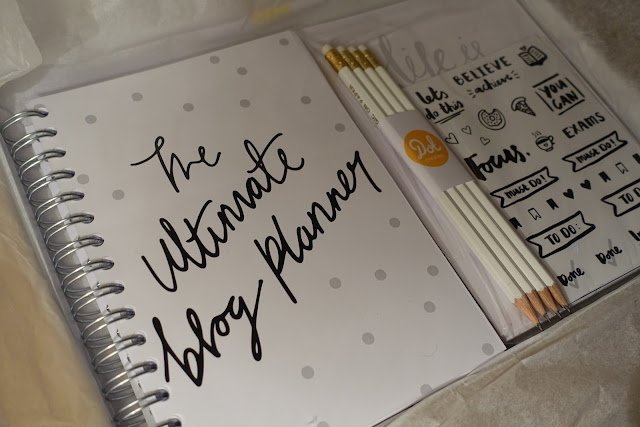 The
Ultimate
blog planner
life is
Dol
BELIEVE
achieve
lets
do this
YOU
CAN
Focus.
EXAMS
MUST DO!
MUST DO!
TO DO:
TO DO:
Done
Done